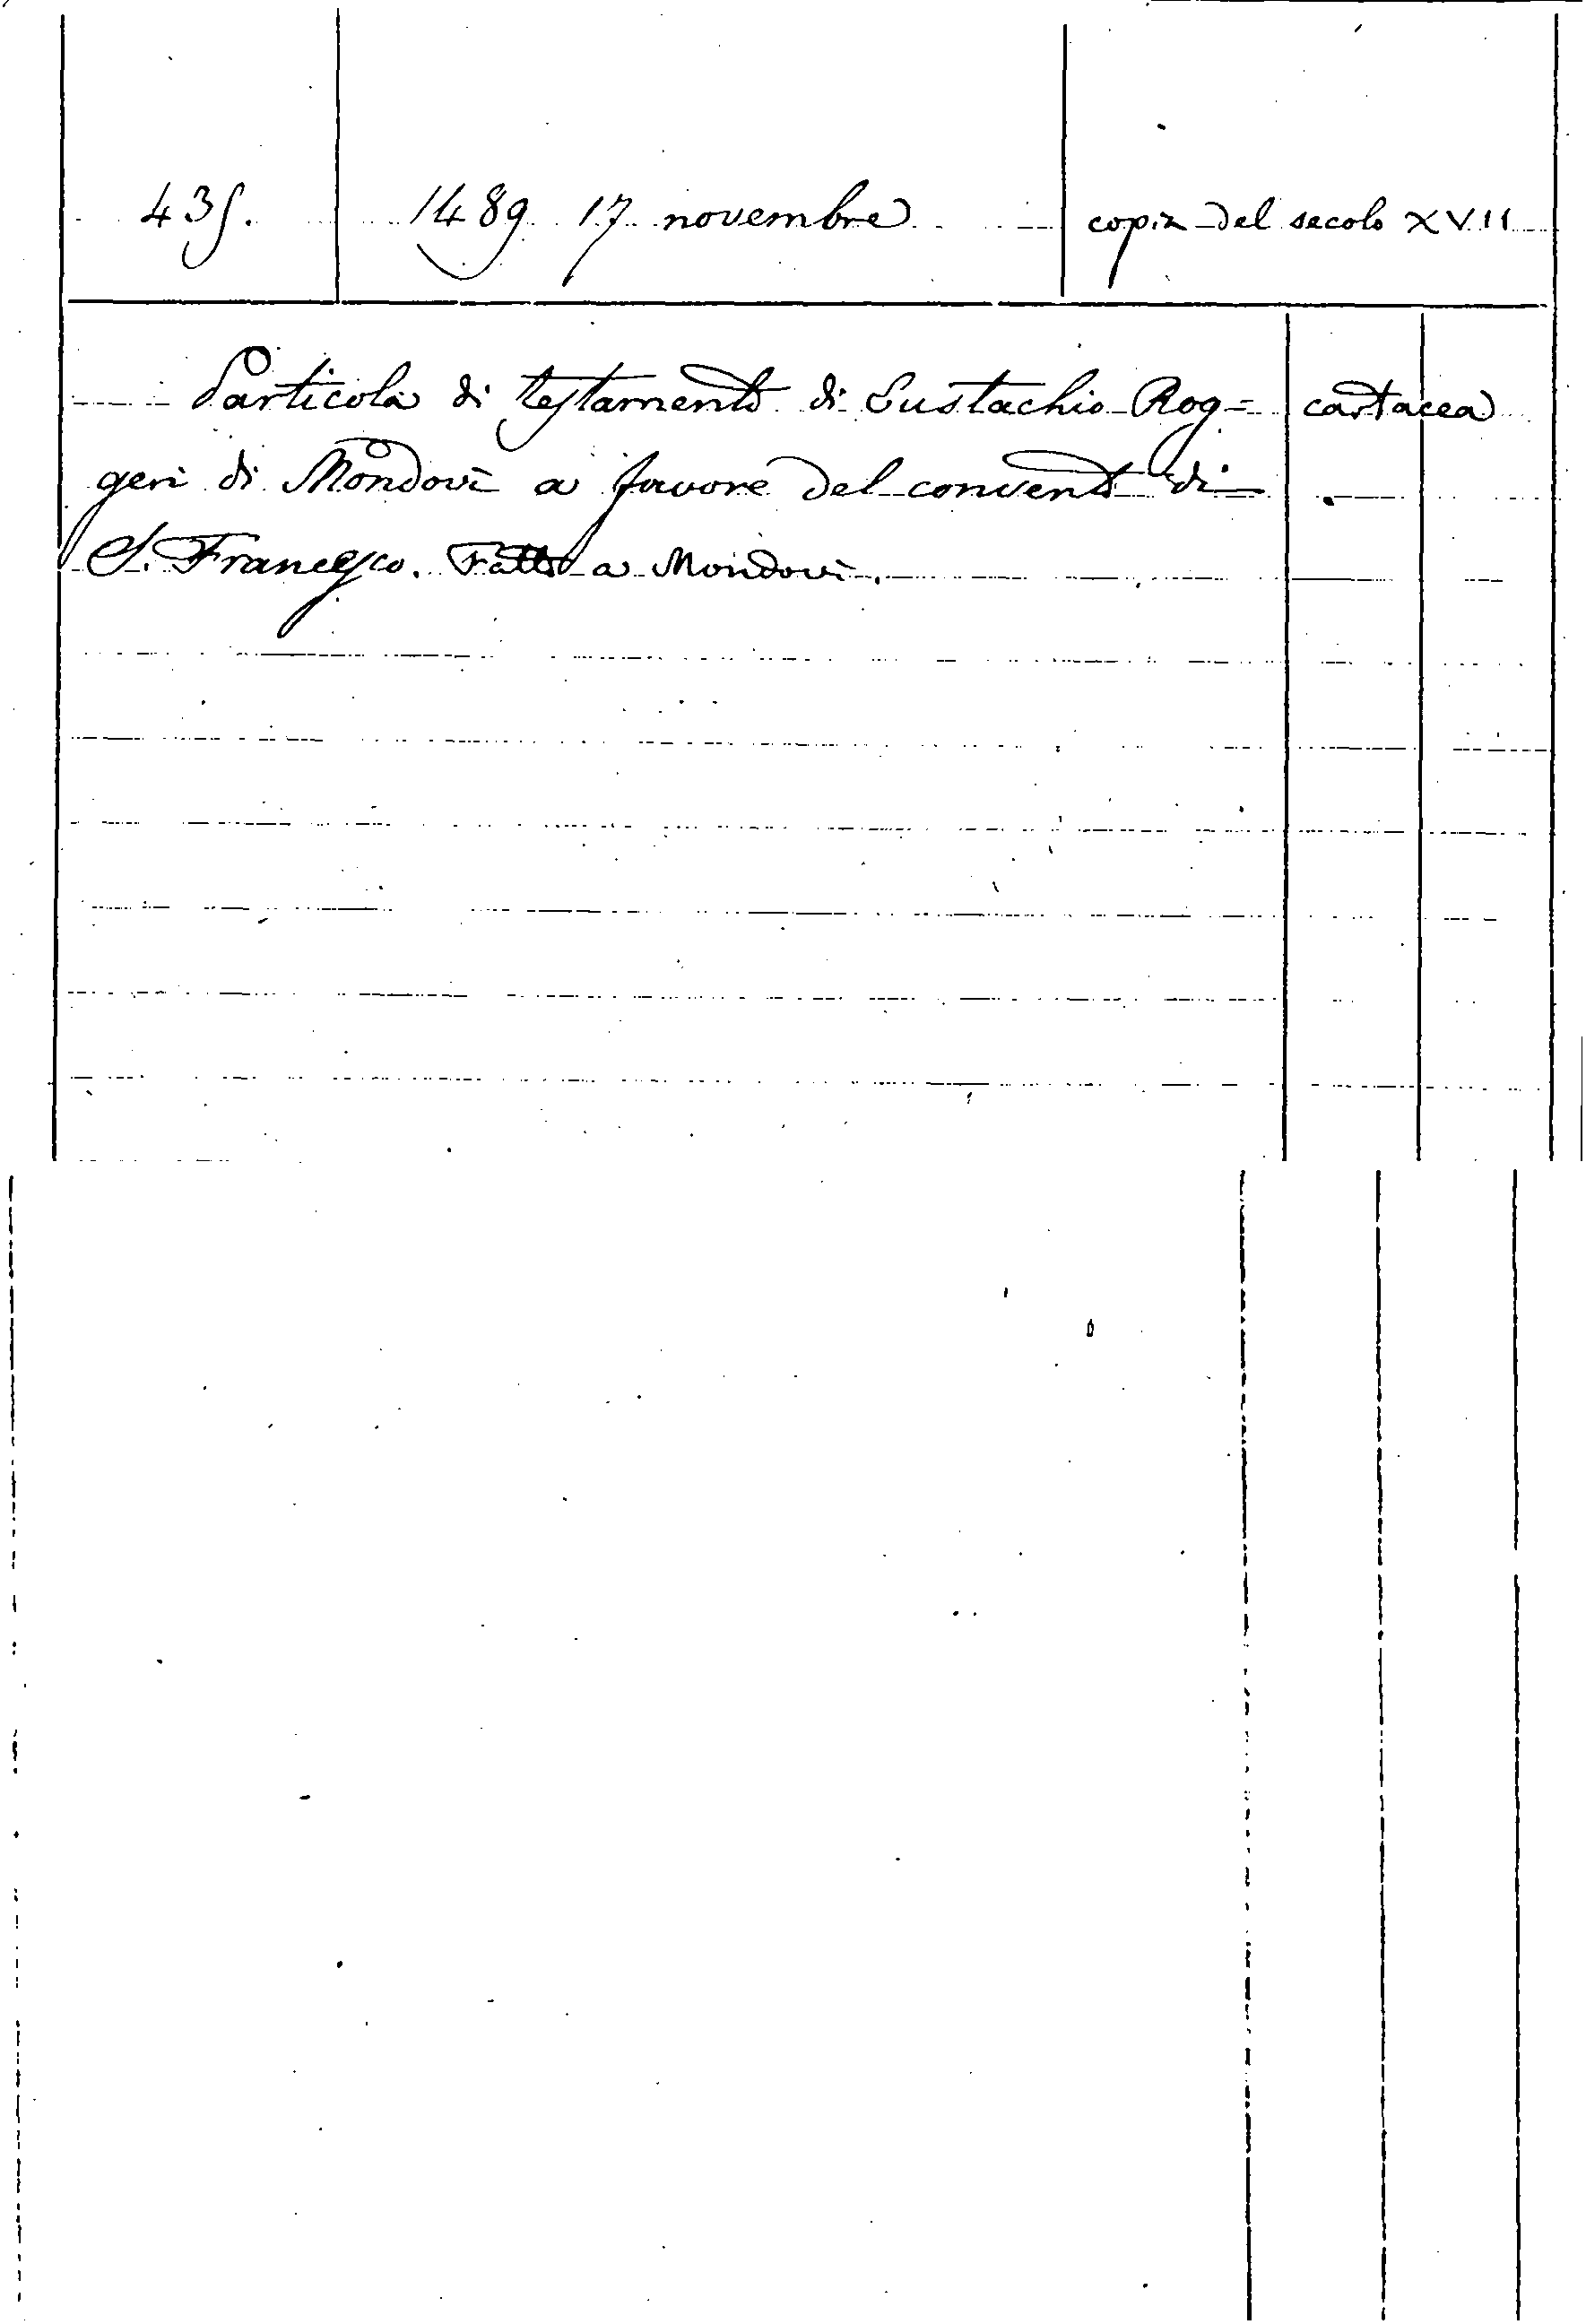 435. 1489 17 novembre copia del secolo XVII
Particola di testamento di Eustachio Rog= cartacea
geri di Mondovì a favore del convento di
S. Francesco. Fatto a Mondovì.